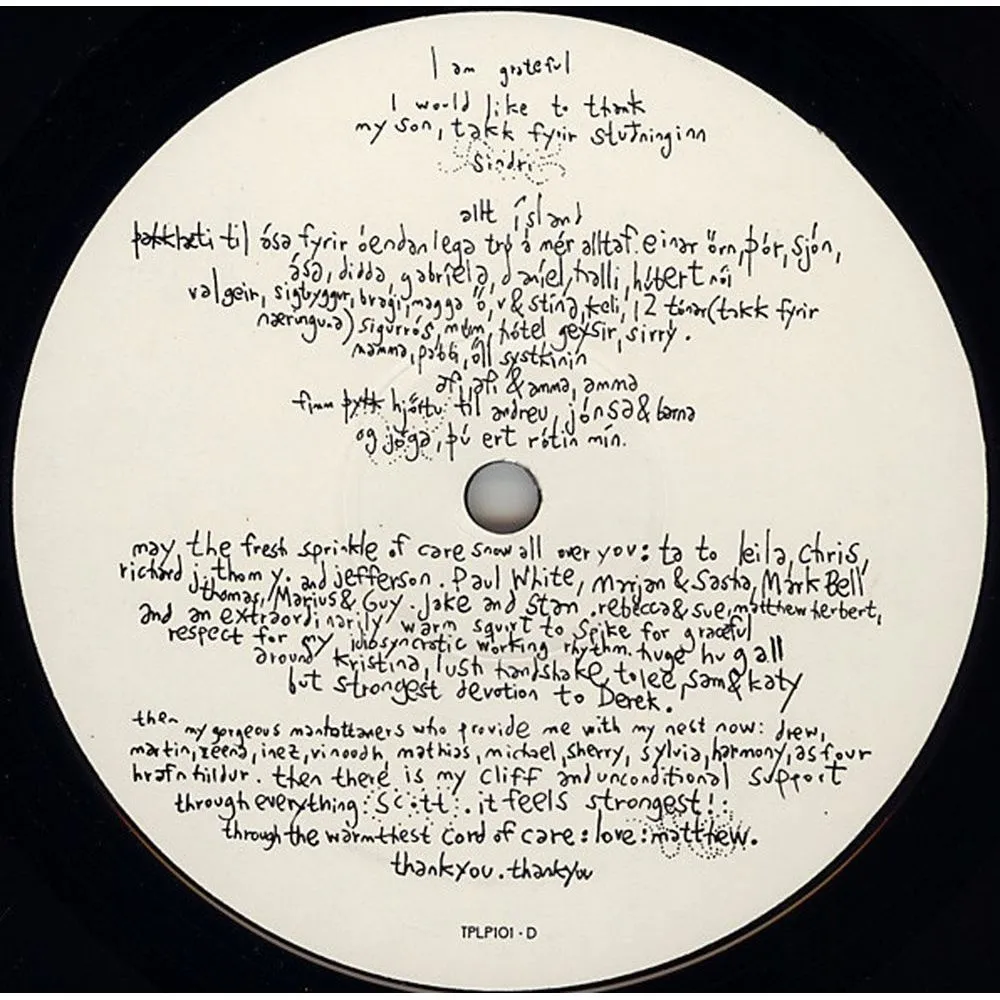 I am grateful
I would like to thank
my son, takk fyrir stuðninginn
Sindri
allt ísland
þakklæti til ása fyrir óendanlega trú á mér alltaf. einar örn, þór, sjón,
ása, didda, gabríela, daníel, halli, hótert nói
valgeir, sigtryggur, bragi, magga ö, v & stína, keli, 12 tónar (takk fyrir
næringuna) sigurrós, múm, hótel geysir, sirrý.
mamma, pabbi, öll systkinin
afi, afi & amma, amma
fimm þykk hjörtu til andreu, jónsa & barna
og jóga, þú ert rótin mín.
may the fresh sprinkle of care snow all over you: ta to leila, chris,
richard j. thom y. and jefferson. Paul White, Marjan & Sasha, Mark Bell
thomas, Marius & Guy. Jake and Stan. rebecca & sue, matthew herbert,
and an extraordinarily warm squirt to Spike for graceful
respect for my idiosyncratic working rhythm. huge hug all
around kristina, lush handshake to lee, sam & katy
but strongest devotion to Derek.
then my gorgeous manhattaners who provide me with my nest now: drew,
martin, zeena, inez, vinoodh, mathias, michael, sherry, sylvia, harmony, as four
hrafnhildur. then there is my cliff and unconditional support
through everything: Scott. it feels strongest!:
through the warmthest cord of care: love: matthew.
thankyou. thankyou
TPLP101 - D